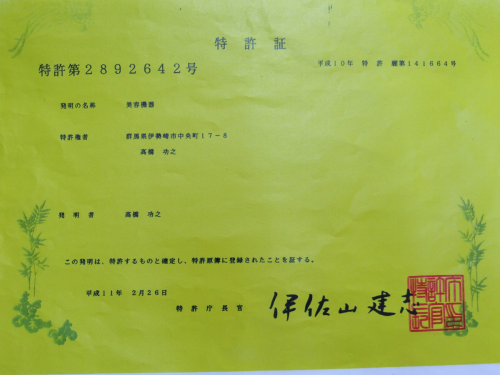 特許証
特許第2892642号
平成10年 特許 願第141664号
発明の名称 美容機器
特許権者 群馬県伊勢崎市中央町17-8
高橋 功之
発明者 高橋 功之
この発明は、特許するものと確定し、特許原簿に登録されたことを証する。
平成11年 2月26日
特許庁長官 伊佐山建志